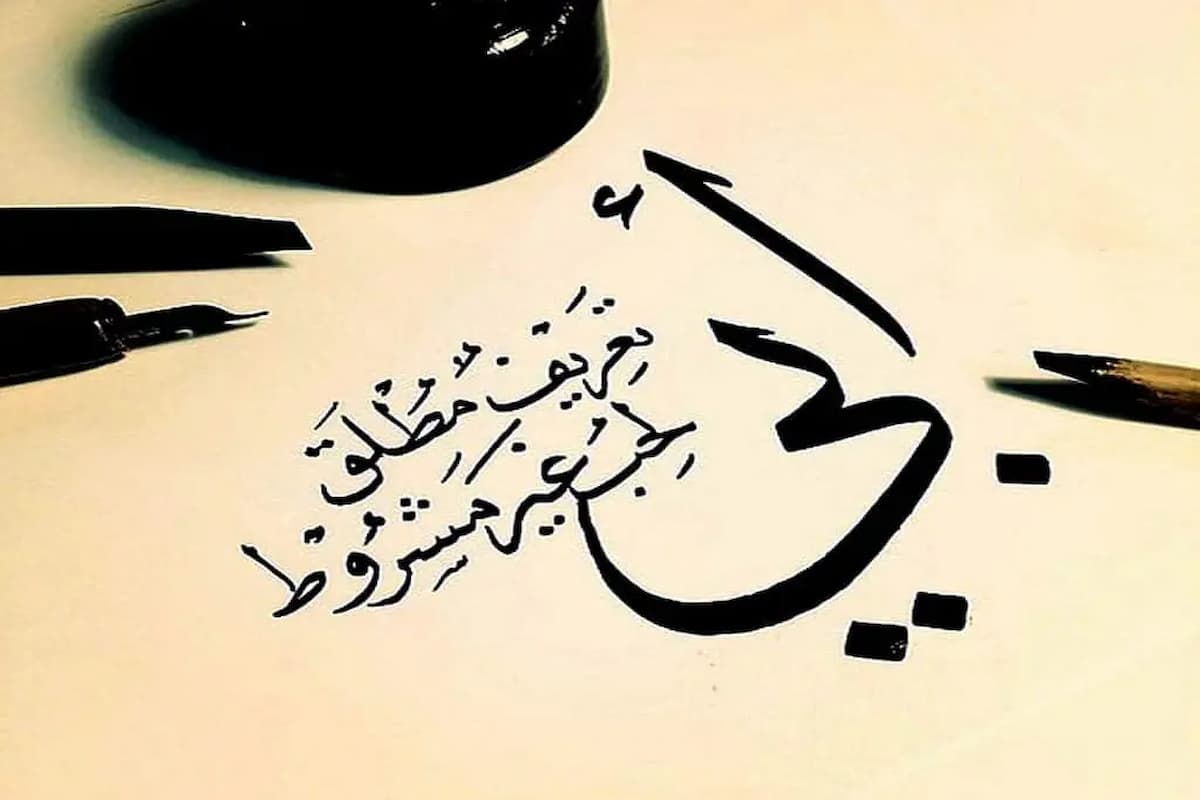 أبي
تعريف مُطلَق
لِحُب غير مَشروُط